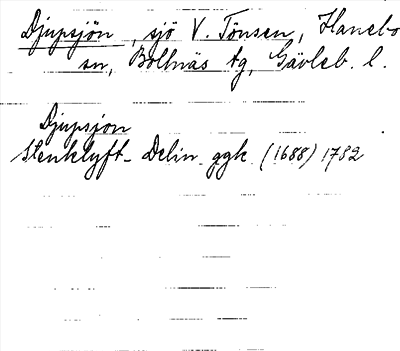 Djupsjön, sjö V. Tönsen, Hanebo
sn, Bollnäs tg, Gävleb. l.
Djupsjon
Stenklyft. Delin. ggk. (1688) 1782